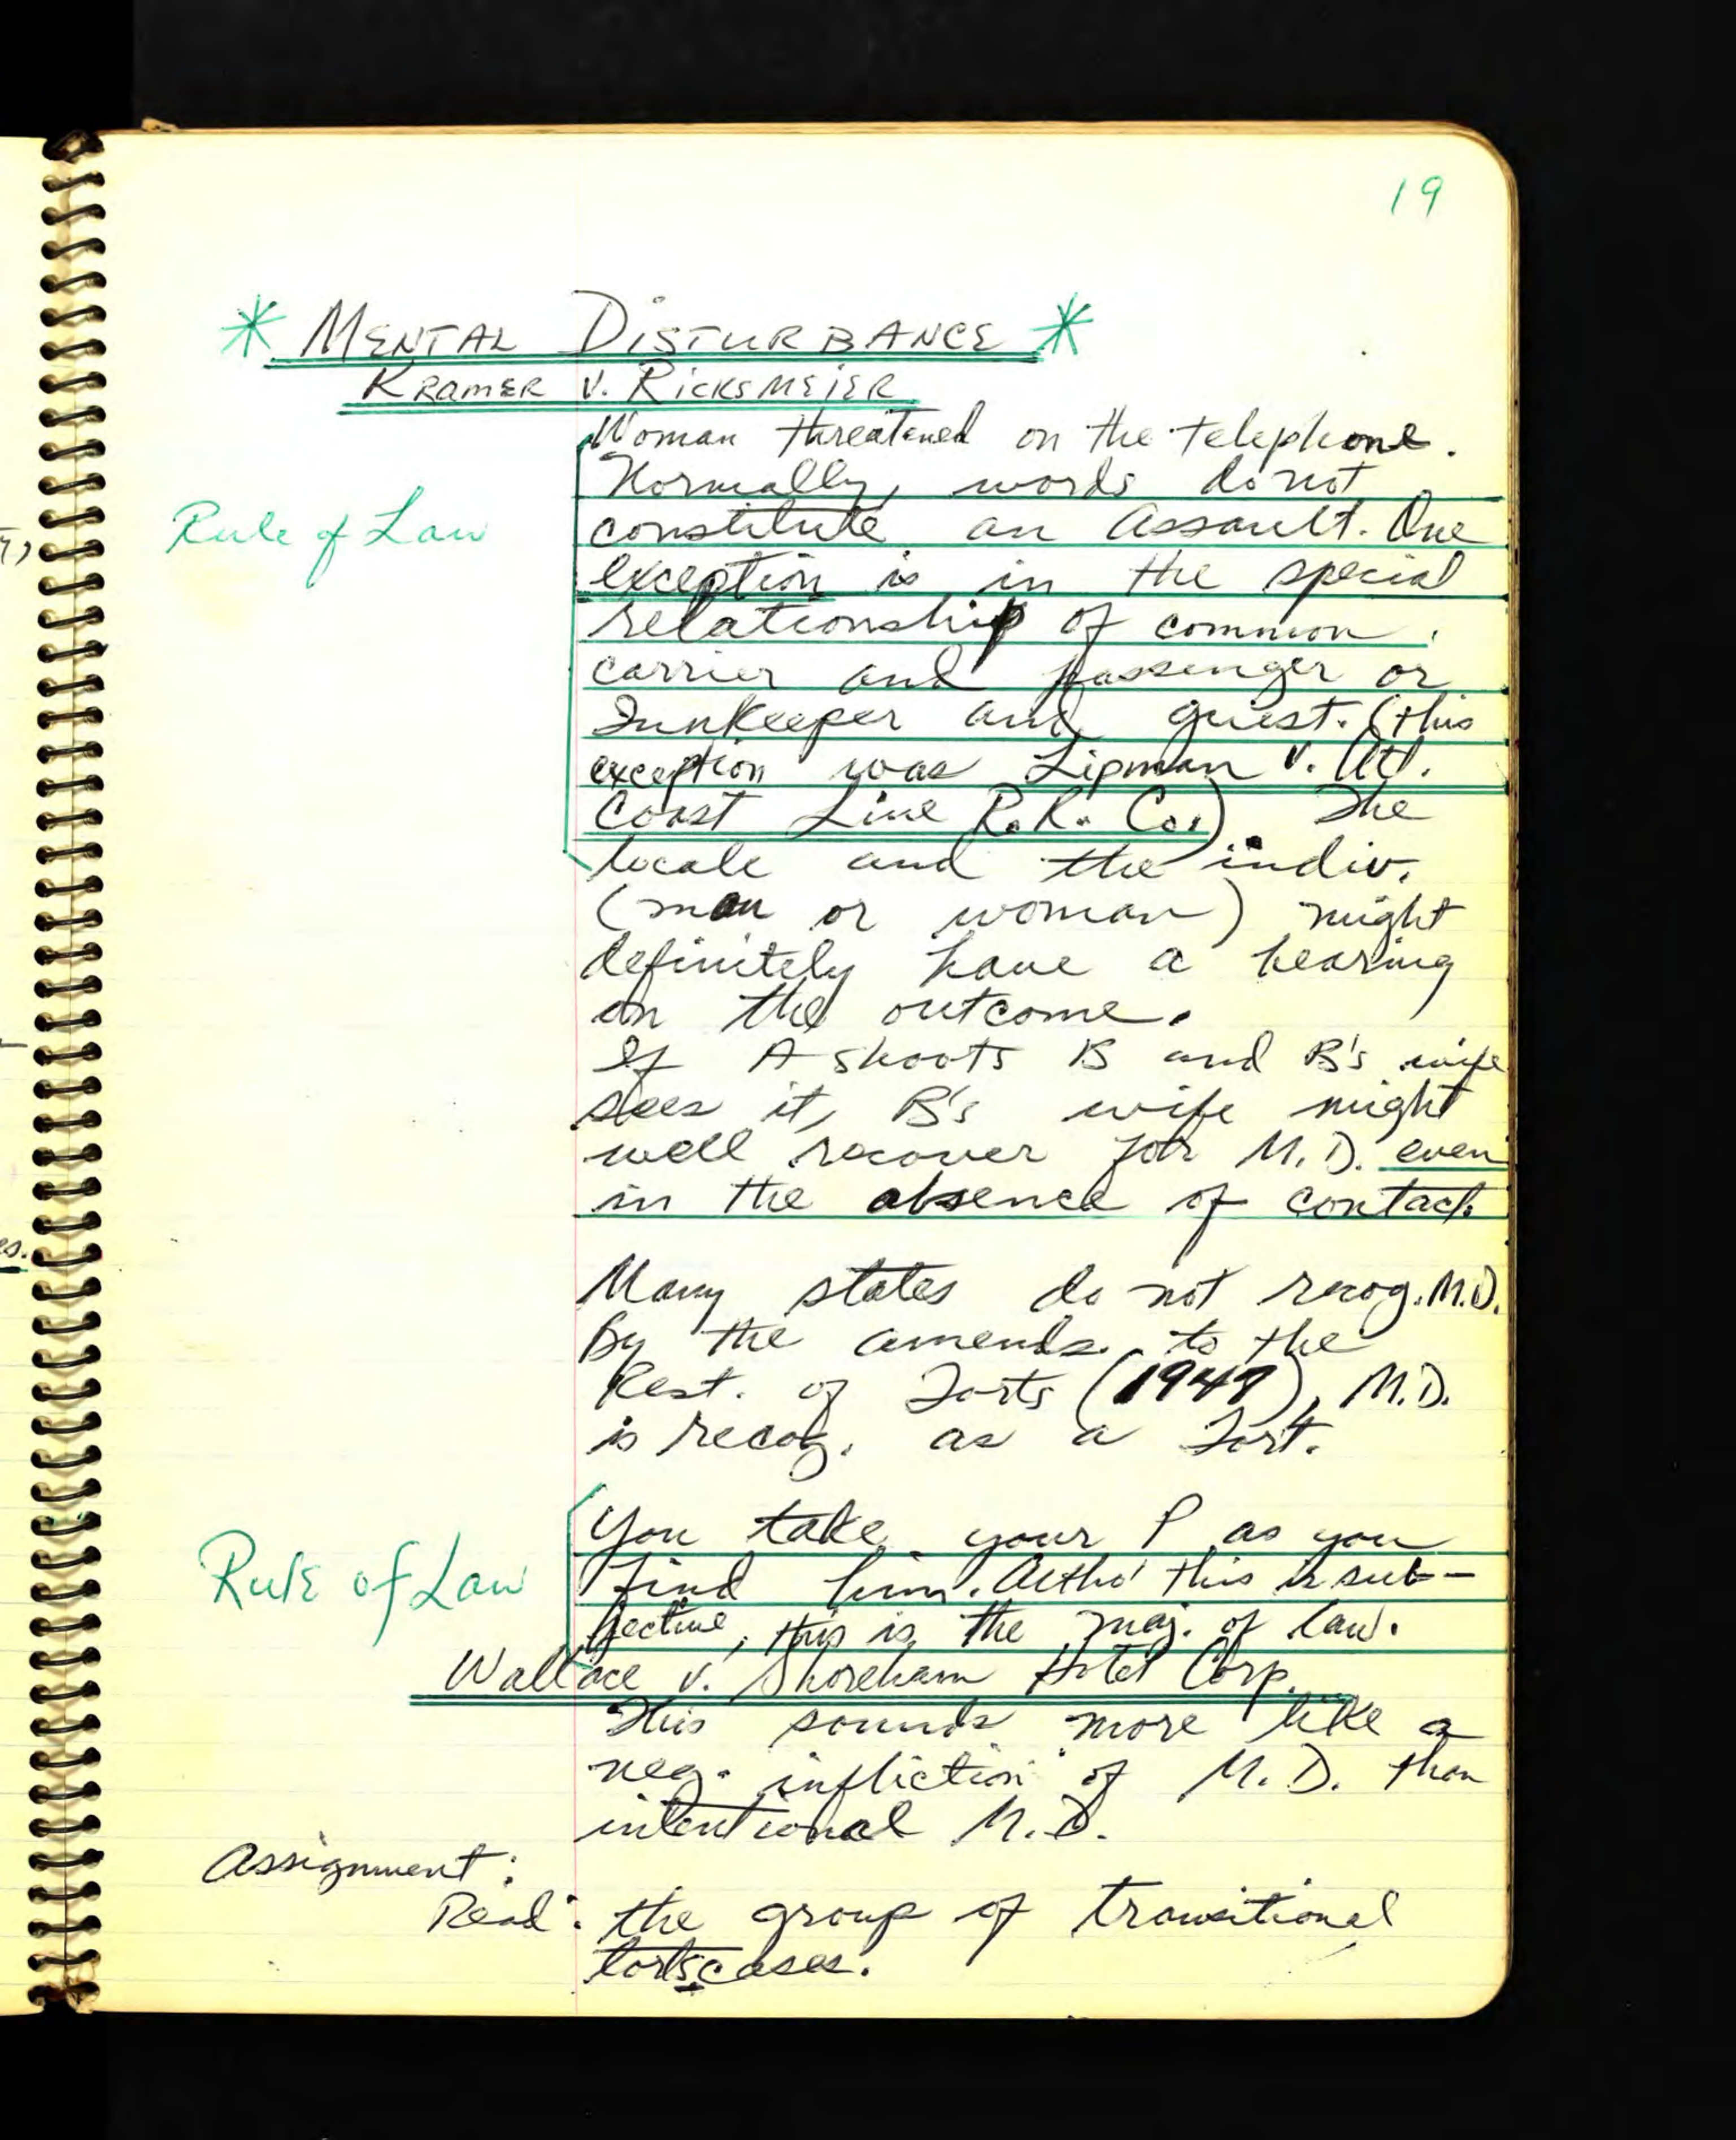 19
* MENTAL DISTURBANCE *
KRAMER V. RICKSMEIER
Woman threatened on the telephone.
Normally, words do not
Rule of Law
constitute an Assault. One
exception is in the special
relationship of common
carrier and passenger or
Innkeeper and guest. (this
exception was Lipman v. Atl.
Coast Line R.R. Co.). The
locale and the indiv.
(man or woman) might
definitely have a bearing
on the outcome.
If A shoots B and B's wife
sees it, B's wife might
well recover for M.D. even
in the absence of contact.
Many states do not recog. M.D.
By the amends. to the
Rest. of Torts (1948), M.D.
is recog. as a Tort.
You take your P as you
Rule of Law
find him. Altho' this is sub-
jective, this is the maj. of law.
Wallace v. Shoreham Hotel Corp.
This sounds more like a
neg. infliction of M.D. than
intentional M.D.
Assignment:
Read: the group of transitional
torts cases.